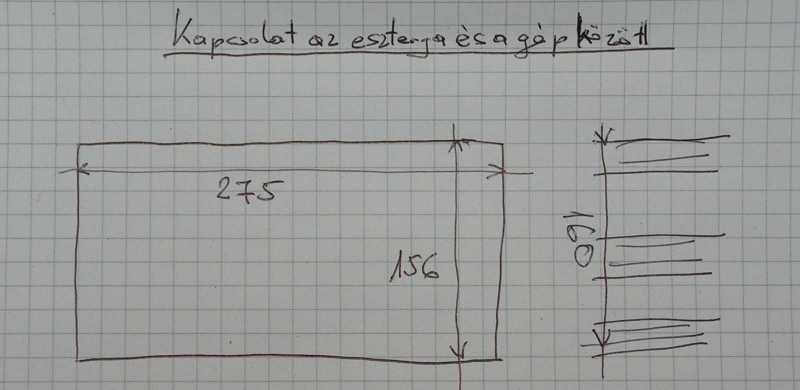 Kapcsolat az eszterga és a gép között
275
156
160